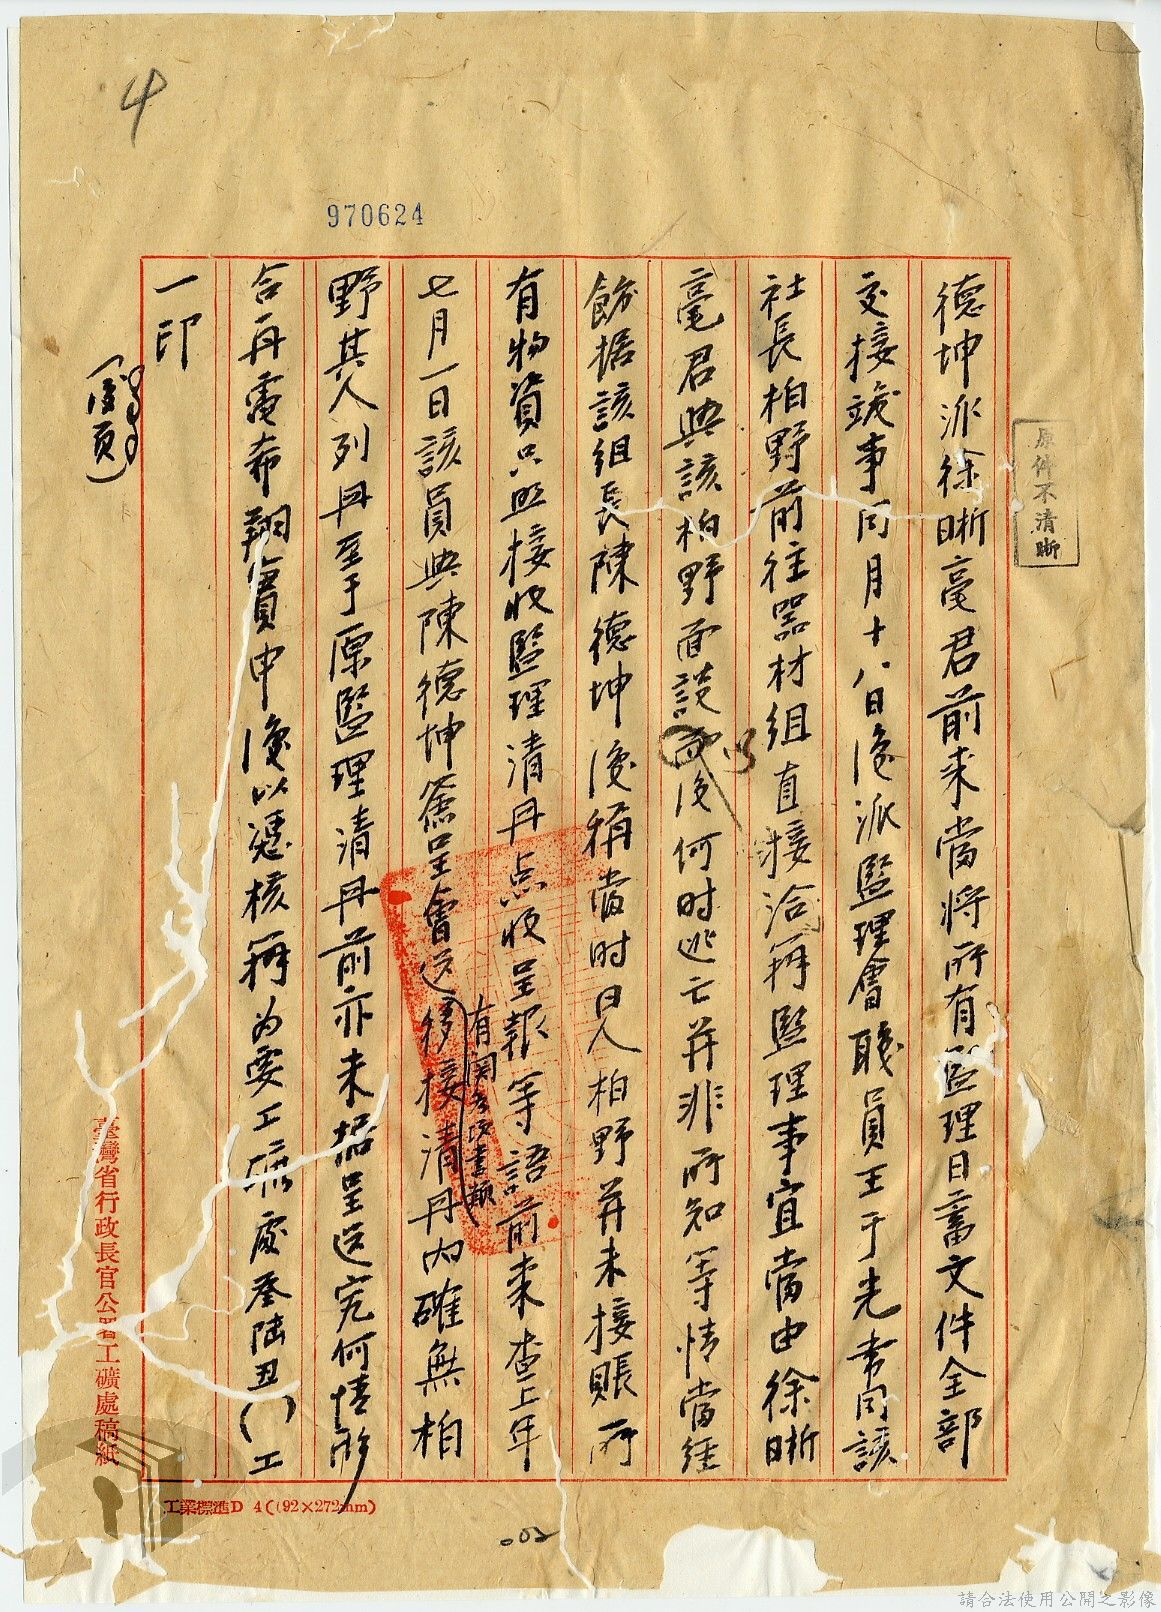 4
970624
原件不清晰
德坤派徐晰亳君前来當將所有監理日蓄文件全部
交接竣事同月十八日復派監理會職員王于光常同該
社長柏野前往器材組直接洽辦監理事宜當由徐晰
亳君與該柏野面談以後何时逃亡并非所知等情當經
飭据該组長陳德坤復稱當时日人柏野并未接賬所
有物資只照接收監理清册点收呈報等語前来查上年
七月一日該員與陳德坤簽呈會送移接清册内確無柏
有関各項書類
野其人列册至于原監理清册前亦未据呈送究何情形
合再電希翔實申復以憑核辦为要工礦處叁陆丑()工
一印
(後頁)
臺灣省行政長官公署工礦處稿紙
工業標準D 4(192×272mm)
002
請合法使用公開之影像